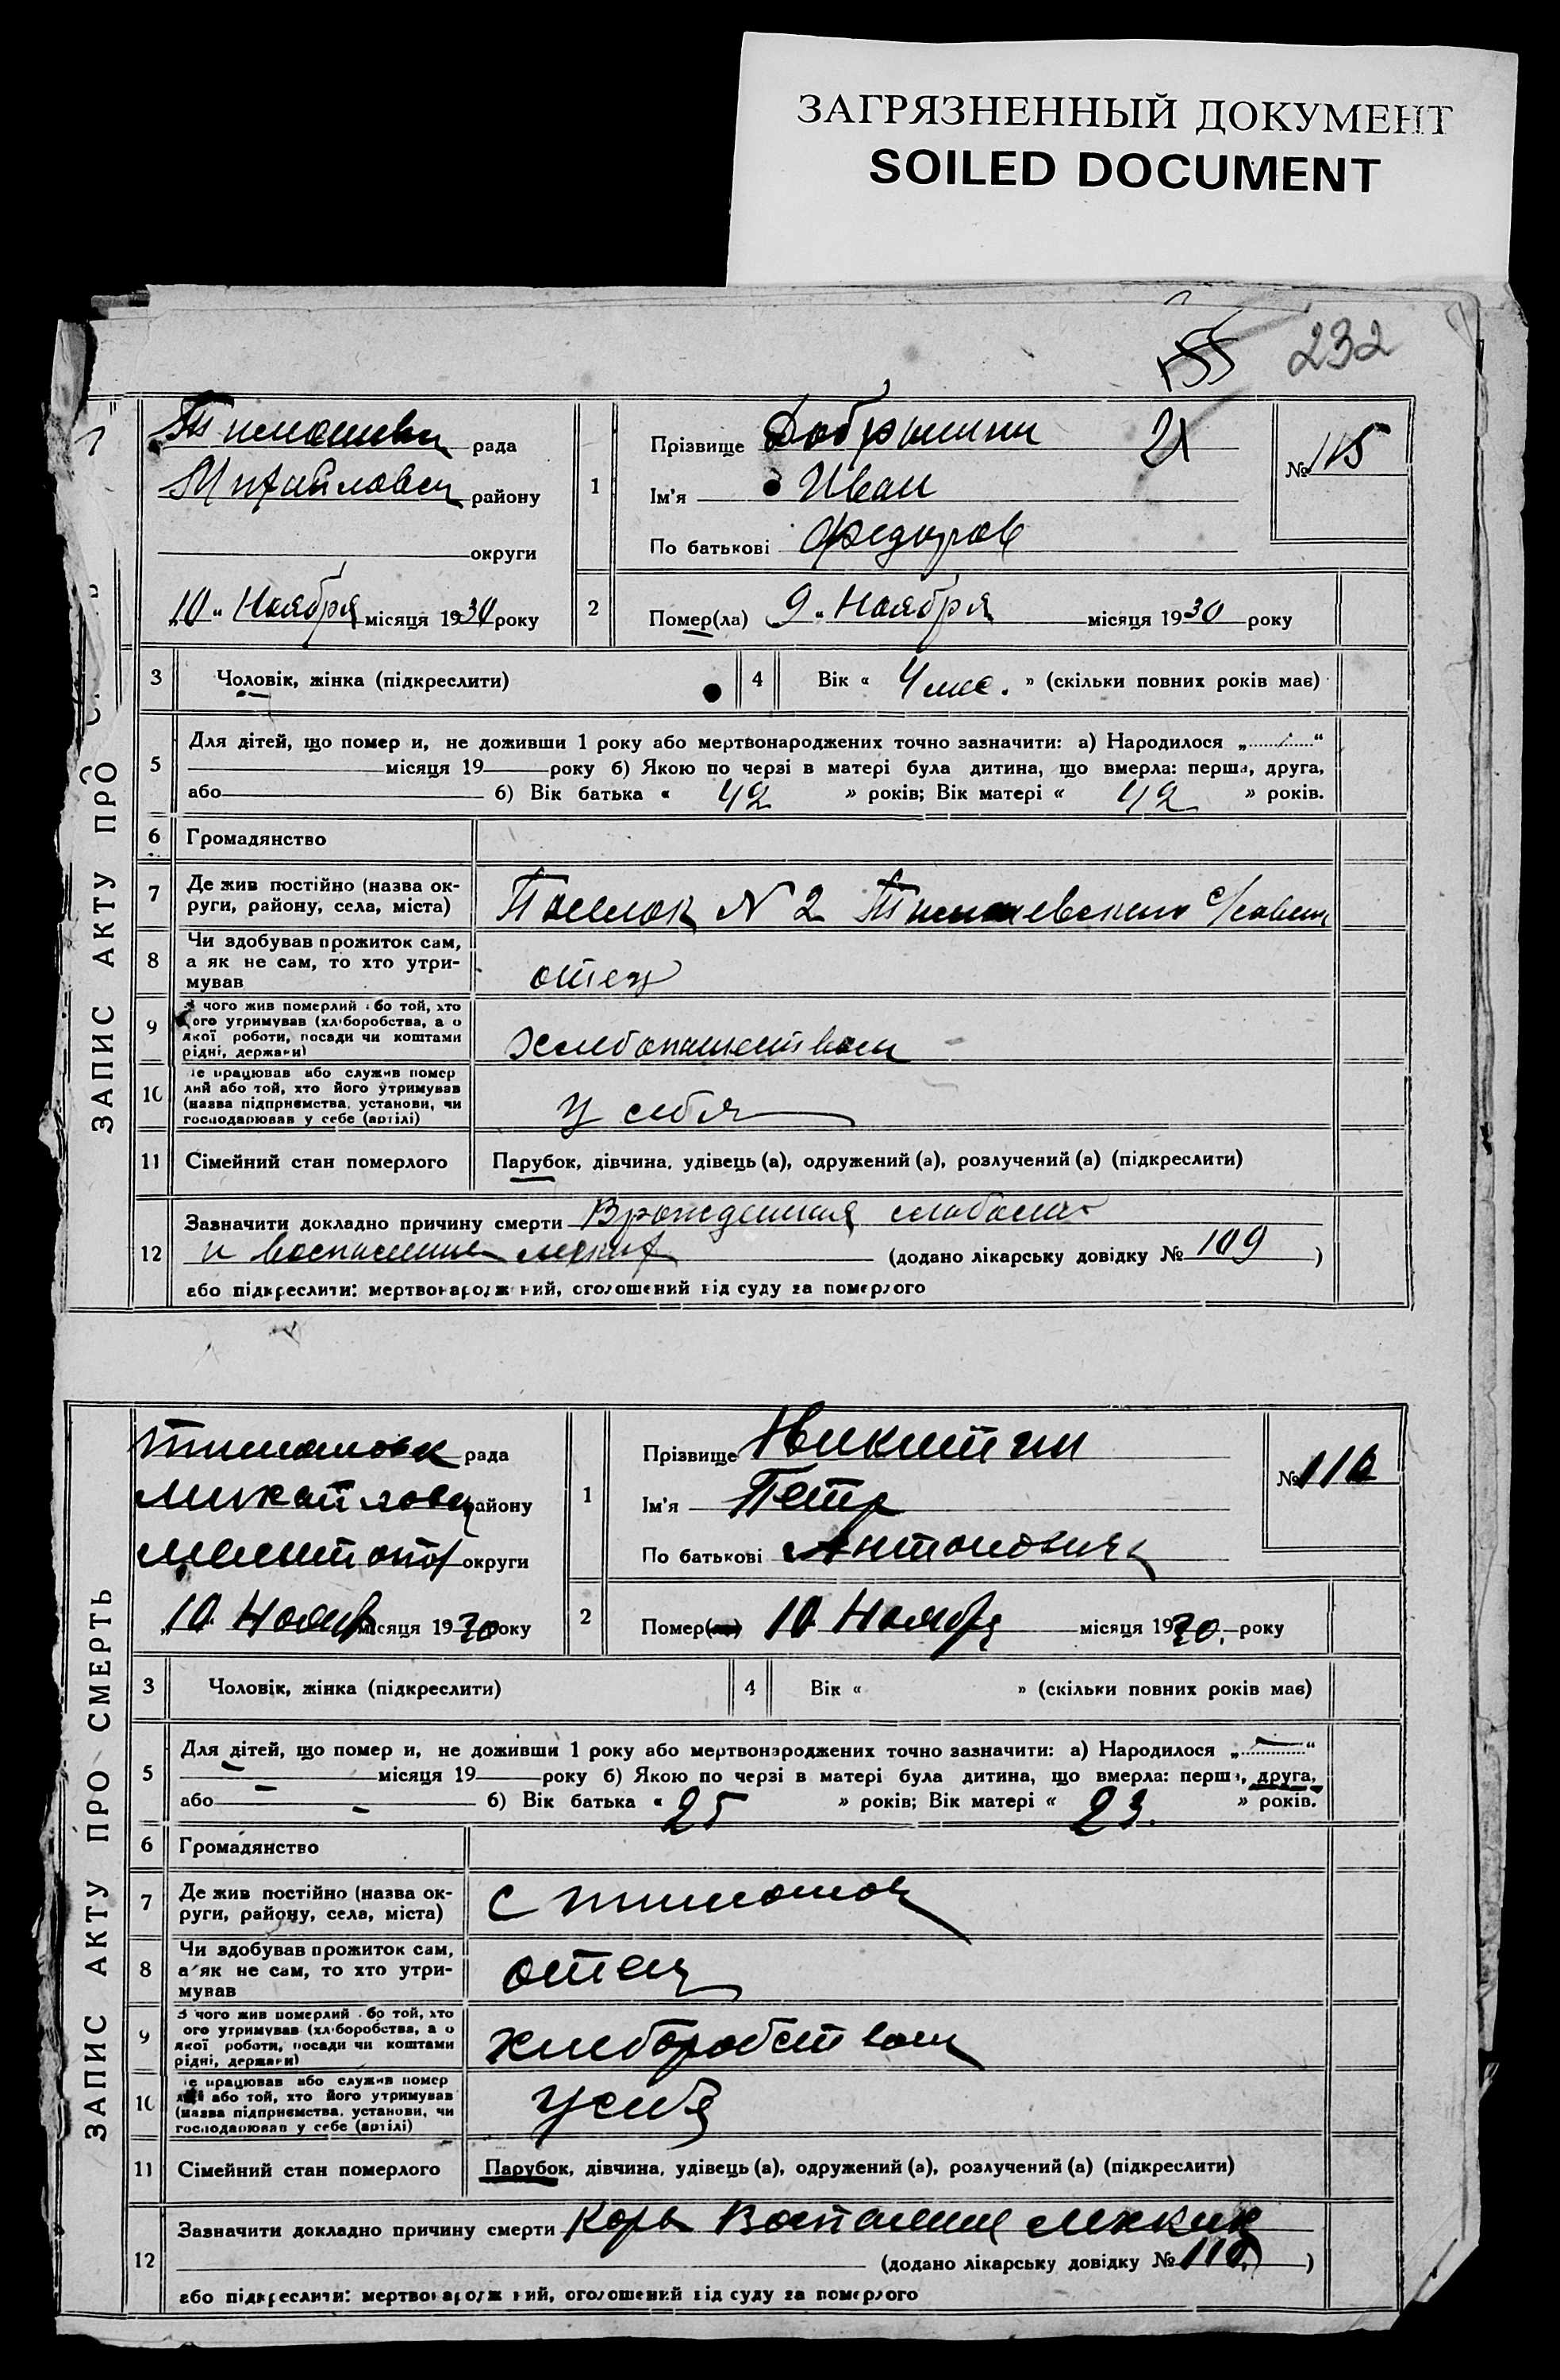 ЗАГРЯЗНЕННЫЙ ДОКУМЕНТ
SOILED DOCUMENT
155 232
ЗАПИС АКТУ ПРО
Тимошевск рада
Михайловск району
округи
10 " Ноября місяця 1930 року
1
Прізвище Добрынин 21
Ім'я Иван
По батькові Федоров
№ 115
2 Помер(ла) 9 " Ноября місяця 1930 року
3 Чоловік, жінка (підкреслити)
4 Вік « 4 мес. » (скільки повних років має)
5 Для дітей, що помер и, не доживши 1 року або мертвонароджених точно зазначити: а) Народилося „ “
місяця 19 року б) Якою по черзі в матері була дитина, що вмерла: перша, друга,
або б) Вік батька « 42 » років; Вік матері « 42 » років.
6 Громадянство
7 Де жив постійно (назва ок-
руги, району, села, міста)
Поселок N 2 Тимошевского с/совета
8 Чи здобував прожиток сам,
а як не сам, то хто утри-
мував
отец
9 З чого жив померлий або той, хто
ого утримував (хліборобства, а о
якої роботи, посади чи коштами
рідні, держави)
Хлебопашеством
10 е працював або служив помер
лий або той, хто його утримував
(назва підприємства, установи, чи
господарював у себе (артілі)
у себя
11 Сімейний стан померлого Парубок, дівчина, удівець (а), одружений (а), розлучений (а) (підкреслити)
12 Зазначити докладно причину смерти Врожденная слабость
и воспаление легких (додано лікарську довідку № 109 )
або підкреслити: мертвонародж ний, оголошений від суду за померлого
ЗАПИС АКТУ ПРО СМЕРТЬ
Тимошовск рада
Михайловск району
Мелитоп округи
10 Ноября місяця 1930 року
1
Прізвище Никитин
Ім'я Петр
По батькові Антонович
№ 116
2 Помер 10 Ноября місяця 1930. року
3 Чоловік, жінка (підкреслити)
4 Вік « » (скільки повних років має)
5 Для дітей, що помер и, не доживши 1 року або мертвонароджених точно зазначити: а) Народилося „ — “
місяця 19 року б) Якою по черзі в матері була дитина, що вмерла: перша, друга,
або — б) Вік батька « 25 » років; Вік матері « 23. » років.
6 Громадянство
7 Де жив постійно (назва ок-
руги, району, села, міста)
С Тимошов
8 Чи здобував прожиток сам,
а як не сам, то хто утри-
мував
отец
9 З чого жив померлий або той, хто
ого утримував (хліборобства, а о
якої роботи, посади чи коштами
рідні, держави)
хлеборобством
10 е працював або служив помер
лий або той, хто його утримував
(назва підприємства, установи, чи
господарював у себе (артілі)
у себя
11 Сімейний стан померлого Парубок, дівчина, удівець (а), одружений (а), розлучений (а) (підкреслити)
12 Зазначити докладно причину смерти Корь Воспаление легких
(додано лікарську довідку № 110 )
або підкреслити: мертвонародж ний, оголошений від суду за померлого